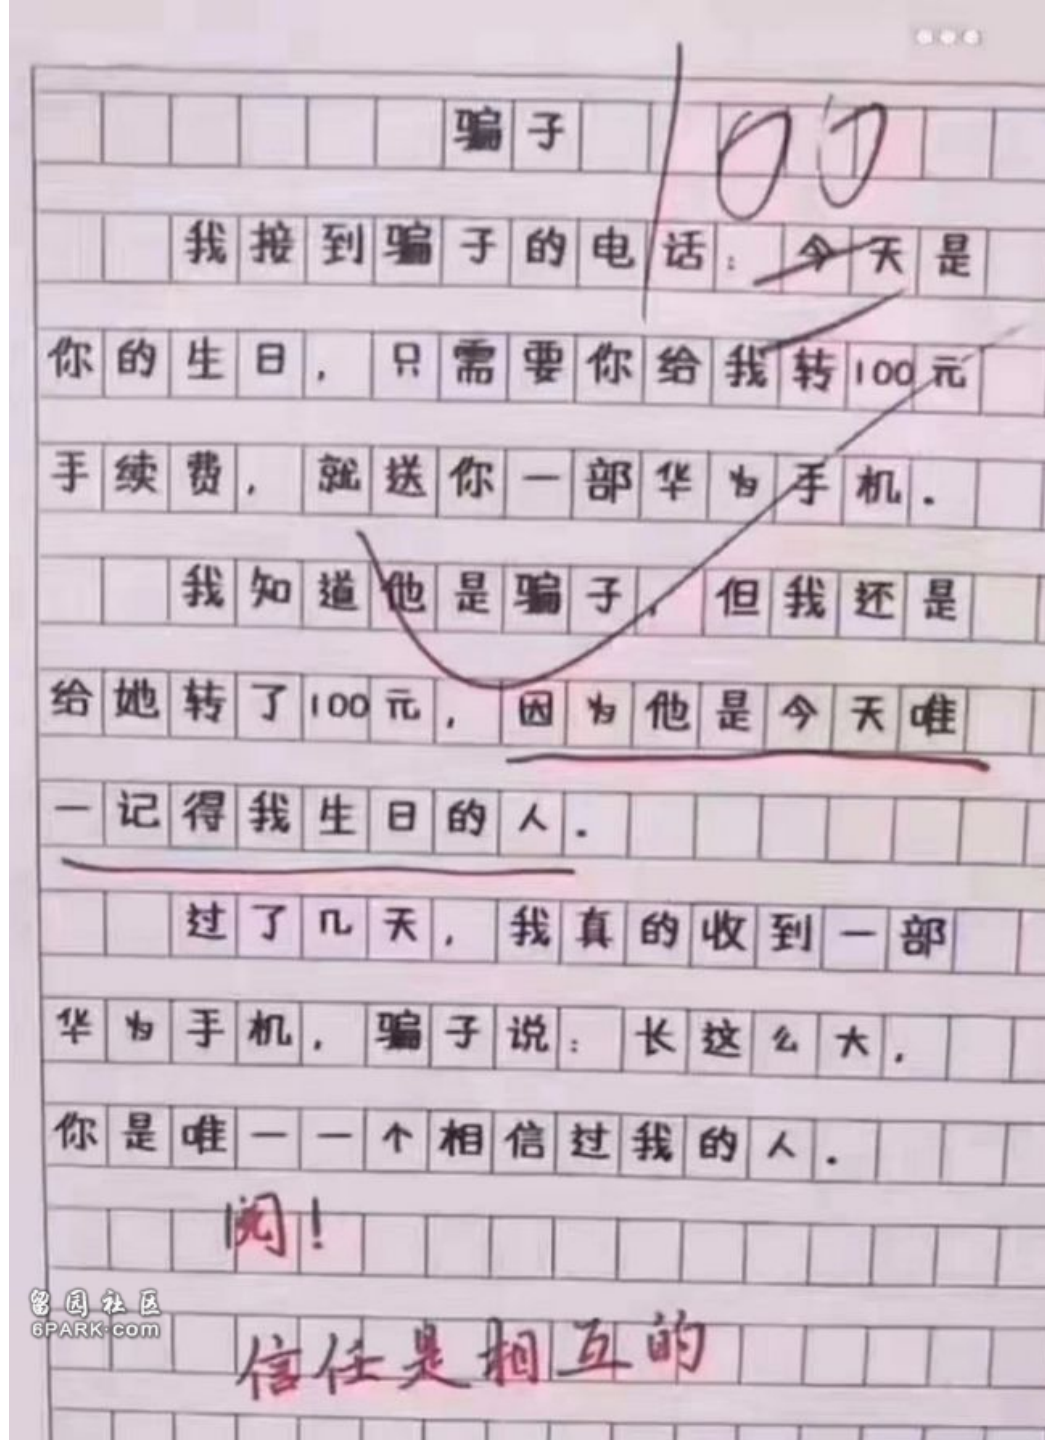 骗子
100
我接到骗子的电话：今天是
你的生日，只需要你给我转100元
手续费，就送你一部华为手机．
我知道他是骗子，但我还是
给她转了100元，因为他是今天唯
一记得我生日的人．
过了几天，我真的收到一部
华为手机，骗子说：长这么大，
你是唯一一个相信过我的人．
阅！
信任是相互的
留园社区
6PARK.com